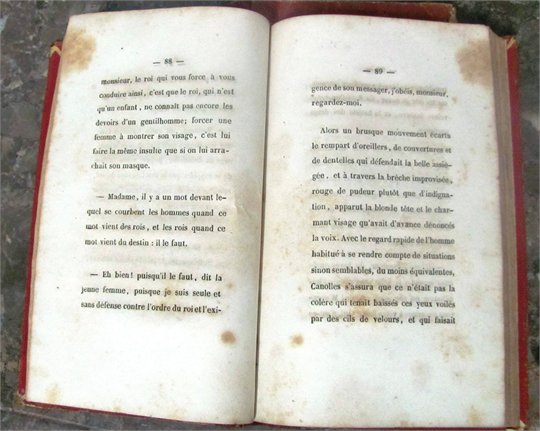 — 88 —
monsieur, le roi qui vous force à vous
conduire ainsi, c'est que le roi, qui n'est
qu'un enfant, ne connaît pas encore les
devoirs d'un gentilhomme; forcer une
femme à montrer son visage, c'est lui
faire la même insulte que si on lui arra-
chait son masque.
— Madame, il y a un mot devant le-
quel se courbent les hommes quand ce
mot vient des rois, et les rois quand ce
mot vient du destin : il le faut.
— Eh bien! puisqu'il le faut, dit la
jeune femme, puisque je suis seule et
sans défense contre l'ordre du roi et l'exi-
— 89 —
gence de son messager, j'obéis, monsieur,
regardez-moi.
Alors un brusque mouvement écarta
le rempart d'oreillers, de couvertures et
de dentelles qui défendait la belle assié-
gée, et à travers la brèche improvisée,
rouge de pudeur plutôt que d'indigna-
tion, apparut la blonde tête et le char-
mant visage qu'avait d'avance dénoncés
la voix. Avec le regard rapide de l'homme
habitué à se rendre compte de situations
sinon semblables, du moins équivalentes,
Canolles s'assura que ce n'était pas la
colère qui tenait baissés ces yeux voilés
par des cils de velours, et qui faisait